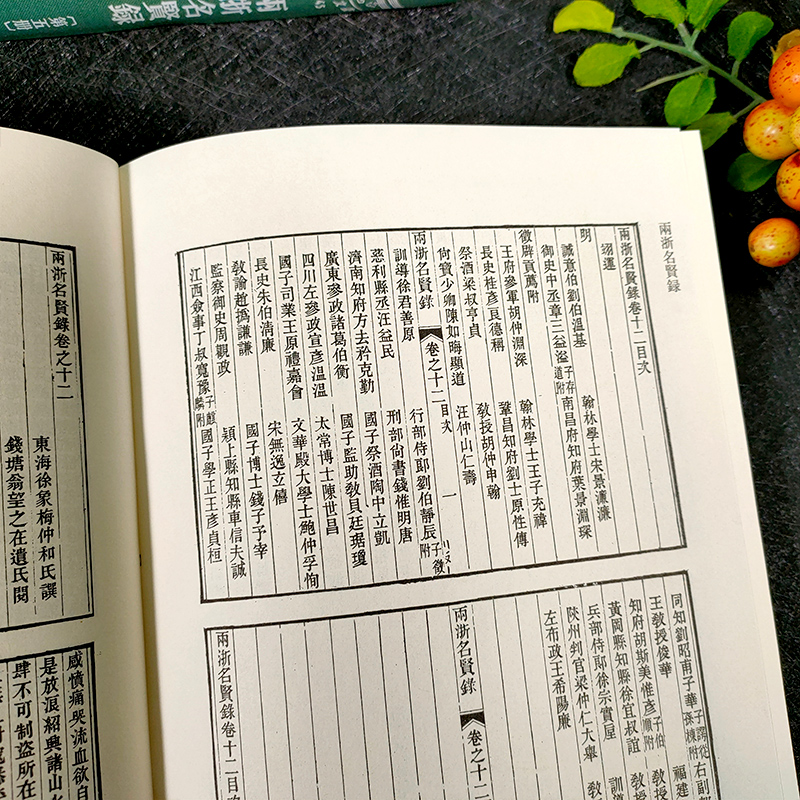 兩浙名賢錄
〔第五冊〕
兩浙名賢録
兩浙名賢錄卷十二目次
明
翊運
誠意伯劉伯溫基
翰林學士宋景濂濂
御史中丞章三益溢子存道附
南昌府知府葉景淵琛
徵辟貢薦附
王府參軍胡仲淵深
翰林學士王子充禕
長史桂彥良德稱
鞏昌知府劉士原性傳
祭酒梁叔亨貞
教授胡仲申翰
尙寶少卿陳如晦顯道
汪仲山仁壽
兩浙名賢錄
卷之十二目次
一
訓導徐君善原
行部侍郞劉伯靜辰子徵附
慈利縣丞汪益民
刑部尙書錢惟明唐
濟南知府方去矜克勤
國子祭酒陶中立凱
廣東參政諸葛伯衡
國子監助敎貝廷琚瓊
四川左參政宣彥溫溫
太常博士陳世昌
國子司業王原禮嘉會
文華殿大學士鮑仲孚恂
長史朱伯淸廉
宋無逸立僖
敎諭趙撝謙謙
國子博士錢子予宰
監察御史周觀政
潁上縣知縣車信夫誠
江西僉事丁叔寬豫
麟附
國子學正王彥貞桓
同知劉昭甫子華
王敎授俊華
知府胡斯美惟彥
黃岡縣知縣徐宜叔誼
兵部侍郞徐宗實屋
陝州判官梁仲仁大舉
左布政王希陽廉
右副
福建
敎授
敎授
訓導
兩浙名賢錄
卷之十二
兩浙名賢錄卷十二目次
兩浙名賢錄卷之十二
東海徐象梅仲和氏譔
錢塘翁望之在遺氏閱
感憤痛哭流血欲自
是放浪紹興諸山水
肆不可制盜所在